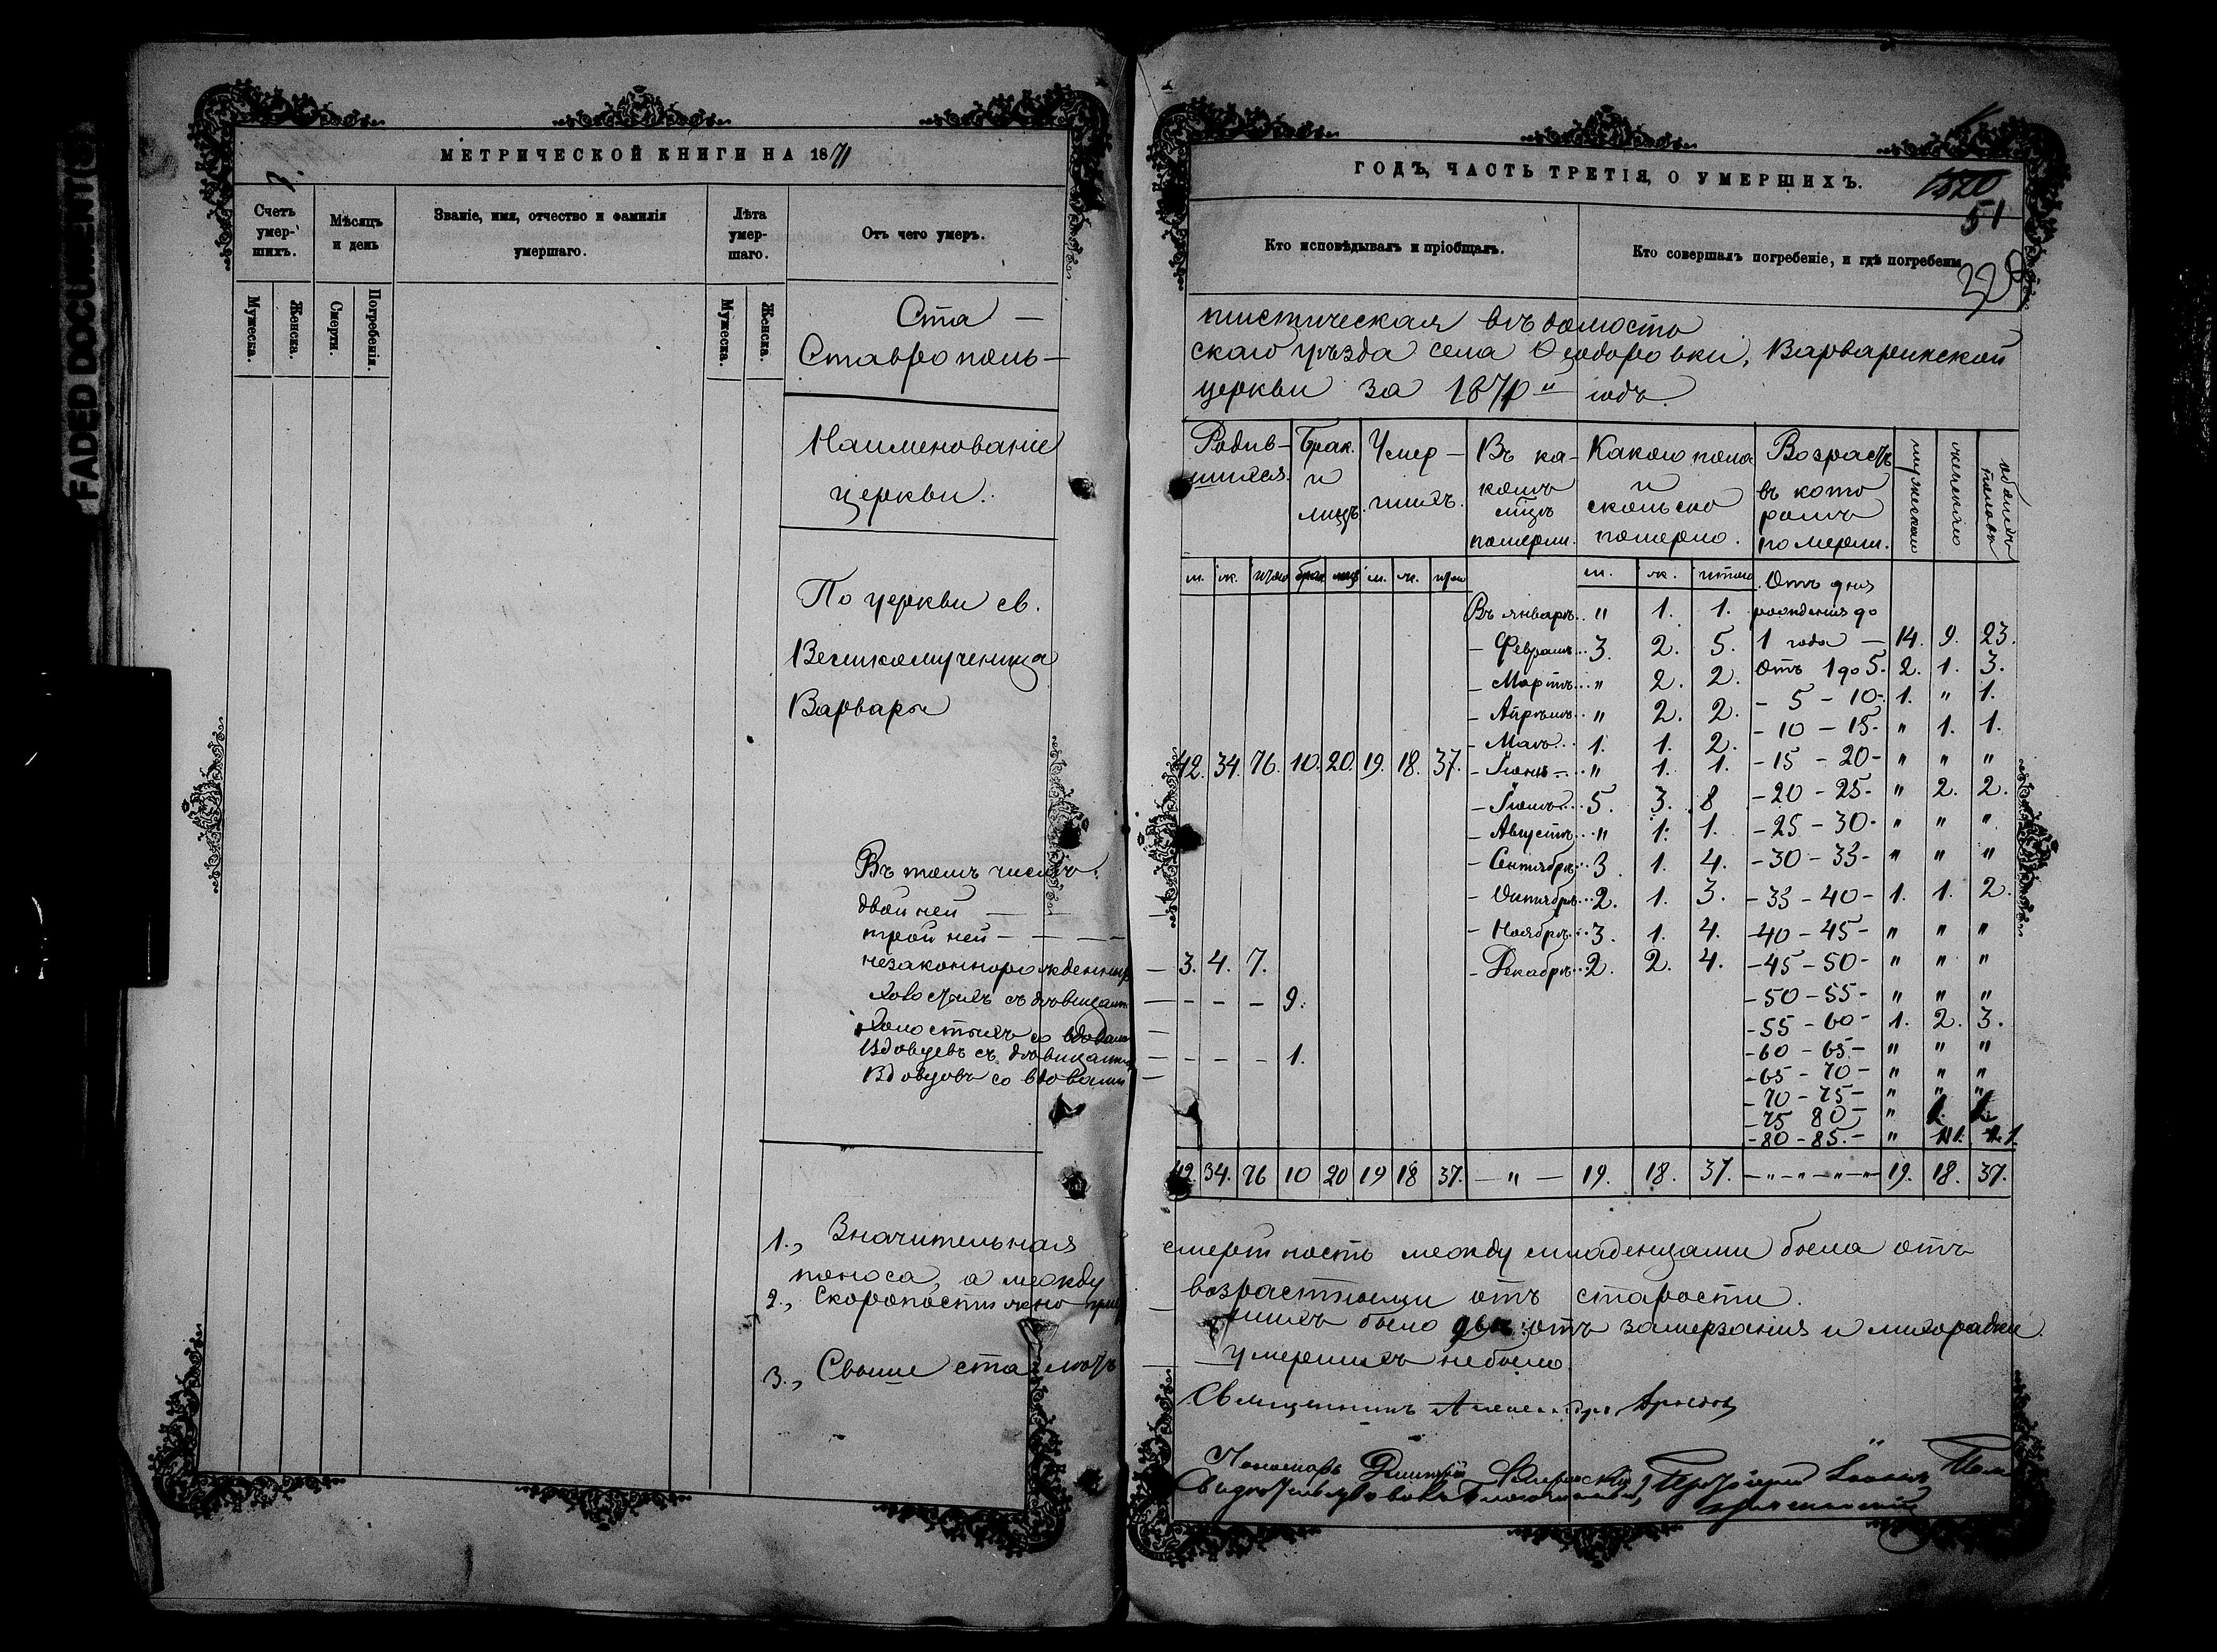 FADED DOCUMENT(S)
МЕТРИЧЕСКОЙ КНИГИ НА 1871
Счетъ умер-шихъ.
Мѣсяцъ и день
Званіе, имя, отчество и фамилія умершаго.
Лѣта умер-шаго.
Отъ чего умеръ.
Мужеска.
Женска.
Смерти.
Погребенія.
Мужеска.
Женска.
Ста —
Ставрополь —
Наименованіе
церкви.
По церкви св.
Великомученица
Варвары
Въ томъ числѣ:
двойней — —
тройней — — —
незаконнорожденныхъ
Холостыхъ съ дѣвицами
Холостыхъ со вдовами
Вдовцевъ съ дѣвицами
Вдовцовъ со вдовами
1., Значительная
поноса, а между
2., Скоропостижно
3., Свыше ста лѣтъ
ГОДЪ, ЧАСТЬ ТРЕТІЯ, О УМЕРШИХЪ.
51
Кто исповѣдывалъ и пріобщалъ.
Кто совершалъ погребеніе, и гдѣ погребены
тистическая вѣдомость
скаго уѣзда села Ѳеодоровки, Варваринской
церкви за 1871 й годъ.
Родив-шихся.
Брак. и лицъ.
Умер-шихъ.
Въ ка-комъ мцѣ померли.
Какого пола и сколько померло.
Возрастъ въ кото ромъ померли.
мужескаго
женскаго
обоихъ половъ
м. ж. итого брак. лицъ м. ж. итого м. ж. итого Отъ дня
Въ январѣ.. " 1. 1. рожденія до
- Февралѣ... 3. 2. 5. 1 года — 14. 9. 23.
- Мартѣ... " 2. 2. Отъ 1 до 5. 2. 1. 3.
- Апрѣлѣ.. " 2. 2. - 5 - 10. 1. " 1.
- Маѣ... 1. 1. 2. - 10 - 15 - " 1. 1.
42. 34. 76. 10. 20. 19. 18. 37. - Іюнѣ - .. " 1. 1. - 15 - 20 - " " "
- Іюлѣ.... 5. 3. 8 - 20 - 25 - " 2. 2.
- Августѣ... " 1. 1. - 25 - 30 - " " "
- Сентябрѣ.. 3. 1. 4. - 30 - 33 - " " "
- Октябрѣ... 2. 1. 3. - 33 - 40 - 1. 1. 2.
- Ноябрѣ... 3. 1. 4. - 40 - 45 - " " "
— 3. 4. 7. - Декабрѣ.. 2. 2. 4. - 45 - 50 - " " "
— - - - 9. - 50 - 55 - " " "
- 55 - 60 - 1. 2. 3.
— - - - 1. - 60 - 65. - " " "
- 65 - 70 - " " "
- 70 - 75 - " " "
- 75 80 - "
- 80 - 85. - " 1. 1.
42. 34. 76 10 20 19 18 37. — " — 19. 18. 37. - " - " - " - " - 19. 18. 37.
смертность между младенцами была отъ
возрастными отъ старости.
шихъ было двѣ: отъ замерзанія и лихорадки.
умершихъ небыло.
Священникъ Александръ
Пономарь Димитрій